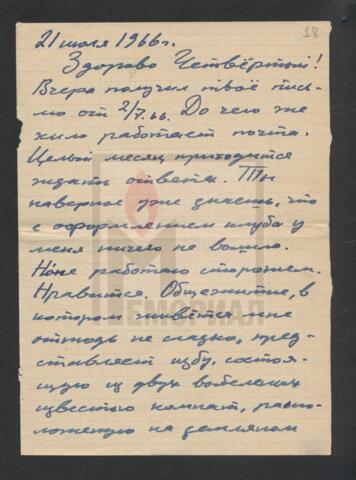 18
21 июля 1966г.
Здорово Четвёртый!
Вчера получил твоё пись-
мо от 2/7.66. До чего же
хило работает почта.
Целый месяц приходится
ждать ответа. Ты
наверное уже знаешь, что
с оформлением клуба у
меня ничего не вышло.
Ноне работаю сторожем.
Нравится. Общежитие, в
котором живётся мне
отнюдь не сладко, пред-
ставляет избу, состоя-
щую из двух побеленных
известью комнат, распо-
ложенную на земляном
МЕМОРИАЛ